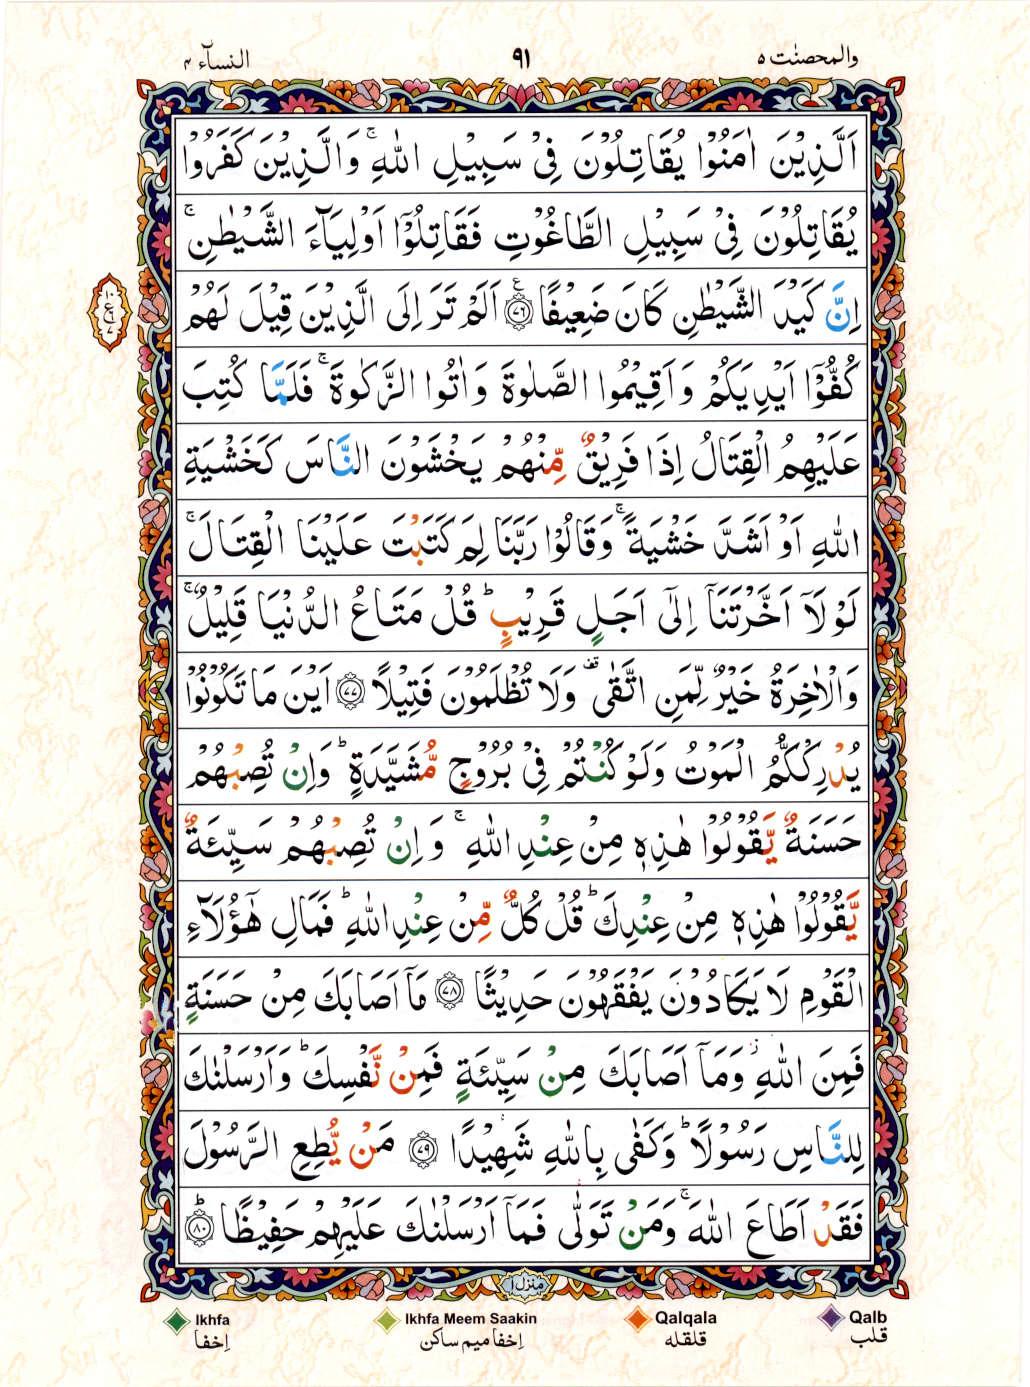 والمحصنٰت ٥
٩١
النسآء ٤
اَلَّذِيْنَ اٰمَنُوْا يُقَاتِلُوْنَ فِيْ سَبِيْلِ اللّٰهِ ۚ وَالَّذِيْنَ كَفَرُوْا
يُقَاتِلُوْنَ فِيْ سَبِيْلِ الطَّاغُوْتِ فَقَاتِلُوْۤا اَوْلِيَآءَ الشَّيْطٰنِ ۚ
اِنَّ كَيْدَ الشَّيْطٰنِ كَانَ ضَعِيْفًا ﴿٧٦﴾ ع اَلَمْ تَرَ اِلَى الَّذِيْنَ قِيْلَ لَهُمْ
كُفُّوْۤا اَيْدِيَكُمْ وَاَقِيْمُوا الصَّلٰوةَ وَاٰتُوا الزَّكٰوةَ ۚ فَلَمَّا كُتِبَ
عَلَيْهِمُ الْقِتَالُ اِذَا فَرِيْقٌ مِّنْهُمْ يَخْشَوْنَ النَّاسَ كَخَشْيَةِ
اللّٰهِ اَوْ اَشَدَّ خَشْيَةً ۚ وَقَالُوْا رَبَّنَا لِمَ كَتَبْتَ عَلَيْنَا الْقِتَالَ ۚ
لَوْ لَاۤ اَخَّرْتَنَاۤ اِلٰۤى اَجَلٍ قَرِيْبٍ ؕ قُلْ مَتَاعُ الدُّنْيَا قَلِيْلٌ ۚ
وَالْاٰخِرَةُ خَيْرٌ لِّمَنِ اتَّقٰى قف وَلَا تُظْلَمُوْنَ فَتِيْلًا ﴿٧٧﴾ اَيْنَ مَا تَكُوْنُوْا
يُدْرِكْكُّمُ الْمَوْتُ وَلَوْ كُنْتُمْ فِيْ بُرُوْجٍ مُّشَيَّدَةٍ ؕ وَاِنْ تُصِبْهُمْ
حَسَنَةٌ يَّقُوْلُوْا هٰذِهٖ مِنْ عِنْدِ اللّٰهِ ۚ وَاِنْ تُصِبْهُمْ سَيِّئَةٌ
يَّقُوْلُوْا هٰذِهٖ مِنْ عِنْدِكَ ؕ قُلْ كُلٌّ مِّنْ عِنْدِ اللّٰهِ ؕ فَمَالِ هٰۤؤُلَآءِ
الْقَوْمِ لَا يَكَادُوْنَ يَفْقَهُوْنَ حَدِيْثًا ﴿٧٨﴾ مَاۤ اَصَابَكَ مِنْ حَسَنَةٍ
فَمِنَ اللّٰهِ ز وَمَاۤ اَصَابَكَ مِنْ سَيِّئَةٍ فَمِنْ نَّفْسِكَ ؕ وَاَرْسَلْنٰكَ
لِلنَّاسِ رَسُوْلًا ؕ وَكَفٰى بِاللّٰهِ شَهِيْدًا ﴿٧٩﴾ مَنْ يُّطِعِ الرَّسُوْلَ
فَقَدْ اَطَاعَ اللّٰهَ ۚ وَمَنْ تَوَلّٰى فَمَاۤ اَرْسَلْنٰكَ عَلَيْهِمْ حَفِيْظًا ؕ ﴿٨٠﴾
منزل ١
Ikhfa
اِخفا
Ikhfa Meem Saakin
اِخفا میم ساکن
Qalqala
قلقله
Qalb
قلب